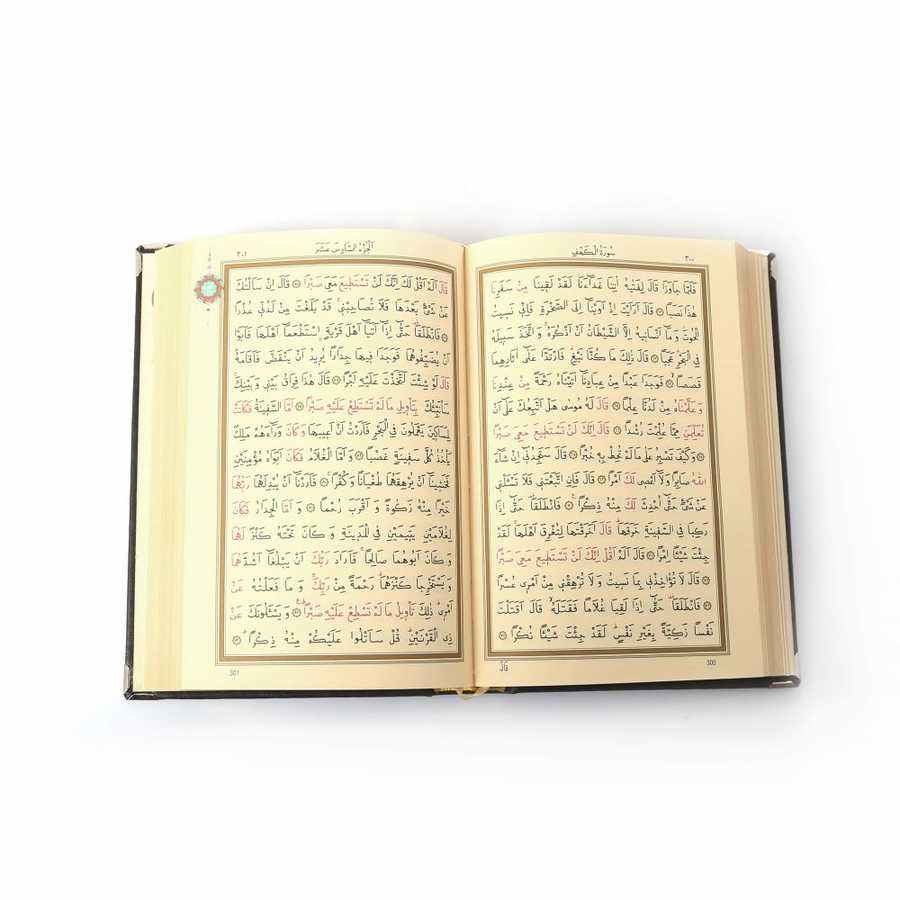 سُورَةُ الْكَهْفِ
٣٠٠
فَلَمَّا جَاوَزَا قَالَ لِفَتٰيهُ اٰتِنَا غَدَٓاءَنَا لَقَدْ لَقِينَا مِنْ سَفَرِنَا
هٰذَا نَصَبًا قَالَ اَرَاَيْتَ اِذْ اَوَيْنَٓا اِلَى الصَّخْرَةِ فَاِنِّى نَسِيتُ
الْحُوتَ وَمَٓا اَنْسَانِيهُ اِلَّا الشَّيْطَانُ اَنْ اَذْكُرَهُ وَاتَّخَذَ سَبِيلَهُ
فِى الْبَحْرِ عَجَبًا قَالَ ذٰلِكَ مَا كُنَّا نَبْغِ فَارْتَدَّا عَلٰٓى اٰثَارِهِمَا
قَصَصًا فَوَجَدَا عَبْدًا مِنْ عِبَادِنَٓا اٰتَيْنَاهُ رَحْمَةً مِنْ عِنْدِنَا
وَعَلَّمْنَاهُ مِنْ لَدُنَّا عِلْمًا قَالَ لَهُ مُوسٰى هَلْ اَتَّبِعُكَ عَلٰٓى اَنْ
تُعَلِّمَنِ مِمَّا عُلِّمْتَ رُشْدًا قَالَ اِنَّكَ لَنْ تَسْتَطِيعَ مَعِىَ صَبْرًا
وَكَيْفَ تَصْبِرُ عَلٰى مَا لَمْ تُحِطْ بِهِ خُبْرًا قَالَ سَتَجِدُنِٓى اِنْ شَٓاءَ
اللّٰهُ صَابِرًا وَلَٓا اَعْصِى لَكَ اَمْرًا قَالَ فَاِنِ اتَّبَعْتَنِى فَلَا تَسْـَٔلْنِى
عَنْ شَىْءٍ حَتّٰٓى اُحْدِثَ لَكَ مِنْهُ ذِكْرًا فَانْطَلَقَا حَتّٰٓى اِذَا
رَكِبَا فِى السَّفِينَةِ خَرَقَهَا قَالَ اَخَرَقْتَهَا لِتُغْرِقَ اَهْلَهَا لَقَدْ
جِئْتَ شَيْـًٔا اِمْرًا قَالَ اَلَمْ اَقُلْ اِنَّكَ لَنْ تَسْتَطِيعَ مَعِىَ صَبْرًا
قَالَ لَا تُؤَاخِذْنِى بِمَا نَسِيتُ وَلَا تُرْهِقْنِى مِنْ اَمْرِى عُسْرًا
فَانْطَلَقَا حَتّٰٓى اِذَا لَقِيَا غُلَامًا فَقَتَلَهُ قَالَ اَقَتَلْتَ
نَفْسًا زَكِيَّةً بِغَيْرِ نَفْسٍ لَقَدْ جِئْتَ شَيْـًٔا نُكْرًا
300
JG
اَلْجُزْءُ السَّادِسَ عَشَرَ
٣٠١
قَالَ اَلَمْ اَقُلْ لَكَ اِنَّكَ لَنْ تَسْتَطِيعَ مَعِىَ صَبْرًا قَالَ اِنْ سَاَلْتُكَ
عَنْ شَىْءٍ بَعْدَهَا فَلَا تُصَاحِبْنِى قَدْ بَلَغْتَ مِنْ لَدُنِّى عُذْرًا
فَانْطَلَقَا حَتّٰٓى اِذَٓا اَتَيَٓا اَهْلَ قَرْيَةٍ اسْتَطْعَمَٓا اَهْلَهَا فَاَبَوْا
اَنْ يُضَيِّفُوهُمَا فَوَجَدَا فِيهَا جِدَارًا يُرِيدُ اَنْ يَنْقَضَّ فَاَقَامَهُ
قَالَ لَوْ شِئْتَ لَتَّخَذْتَ عَلَيْهِ اَجْرًا قَالَ هٰذَا فِرَاقُ بَيْنِى وَبَيْنِكَ
سَاُنَبِّئُكَ بِتَأْوِيلِ مَا لَمْ تَسْتَطِعْ عَلَيْهِ صَبْرًا اَمَّا السَّفِينَةُ فَكَانَتْ
لِمَسَاكِينَ يَعْمَلُونَ فِى الْبَحْرِ فَاَرَدْتُ اَنْ اَعِيبَهَا وَكَانَ وَرَٓاءَهُمْ مَلِكٌ
يَأْخُذُ كُلَّ سَفِينَةٍ غَصْبًا وَاَمَّا الْغُلَامُ فَكَانَ اَبَوَاهُ مُؤْمِنَيْنِ
فَخَشِينَٓا اَنْ يُرْهِقَهُمَا طُغْيَانًا وَكُفْرًا فَاَرَدْنَٓا اَنْ يُبْدِلَهُمَا رَبُّهُمَا
خَيْرًا مِنْهُ زَكٰوةً وَاَقْرَبَ رُحْمًا وَاَمَّا الْجِدَارُ فَكَانَ
لِغُلَامَيْنِ يَتِيمَيْنِ فِى الْمَدِينَةِ وَكَانَ تَحْتَهُ كَنْزٌ لَهُمَا
وَكَانَ اَبُوهُمَا صَالِحًا فَاَرَادَ رَبُّكَ اَنْ يَبْلُغَٓا اَشُدَّهُمَا
وَيَسْتَخْرِجَا كَنْزَهُمَا رَحْمَةً مِنْ رَبِّكَ وَمَا فَعَلْتُهُ عَنْ
اَمْرِى ذٰلِكَ تَأْوِيلُ مَا لَمْ تَسْطِعْ عَلَيْهِ صَبْرًا وَيَسْـَٔلُونَكَ عَنْ
ذِى الْقَرْنَيْنِ قُلْ سَاَتْلُوا عَلَيْكُمْ مِنْهُ ذِكْرًا
301